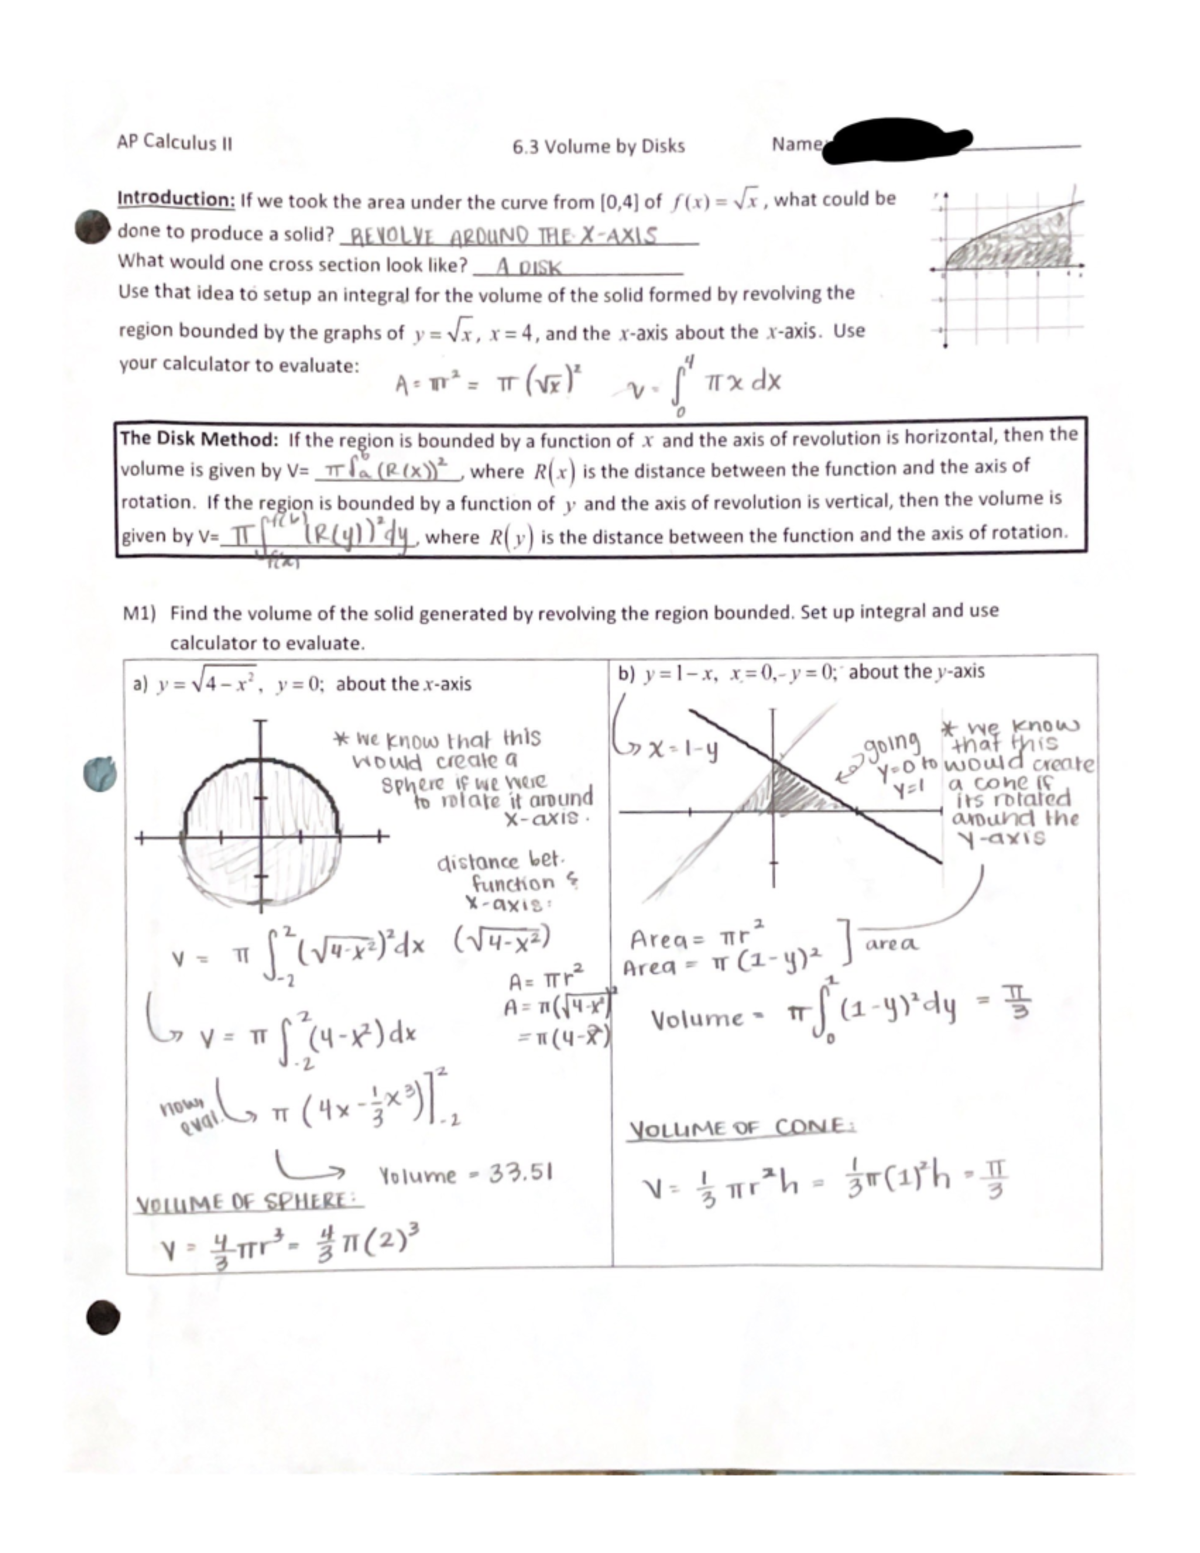 AP Calculus II 6.3 Volume by Disks Name:
Introduction: If we took the area under the curve from [0,4] of f(x) = √x, what could be
done to produce a solid? REVOLVE AROUND THE X-AXIS
What would one cross section look like? A DISK
Use that idea to setup an integral for the volume of the solid formed by revolving the
region bounded by the graphs of y = √x, x = 4, and the x-axis about the x-axis. Use
your calculator to evaluate:
A = πr² = π(√x)² V = ∫₀⁴ πx dx
The Disk Method: If the region is bounded by a function of x and the axis of revolution is horizontal, then the
volume is given by V= π∫ₐᵇ(R(x))², where R(x) is the distance between the function and the axis of
rotation. If the region is bounded by a function of y and the axis of revolution is vertical, then the volume is
given by V= π∫_{f(a)}^{f(b)}(R(y))²dy, where R(y) is the distance between the function and the axis of rotation.
M1) Find the volume of the solid generated by revolving the region bounded. Set up integral and use
calculator to evaluate.
a) y = √4 – x², y = 0; about the x-axis
* we know that this
would create a
sphere if we were
to rotate it around
x-axis.
distance bet.
function &
x-axis:
(√4-x²)
V = π ∫₋₂² (√4-x²)²dx
A = πr²
A = π(√4-x²)²
= π(4-x²)
V = π ∫₋₂² (4-x²)dx
now,
eval.
π (4x - 1/3 x³)]₋₂²
Volume = 33.51
VOLUME OF SPHERE:
V = 4/3 πr³ = 4/3 π(2)³
b) y = 1 – x, x = 0, y = 0; about the y-axis
x = 1-y
going
y=0 to
y=1
* we know
that this
would create
a cone if
its rotated
around the
y-axis
Area = πr²
Area = π (1-y)²
area
Volume = π∫₀¹ (1-y)²dy = π/3
VOLUME OF CONE:
V = 1/3 πr²h = 1/3 π(1)²h = π/3